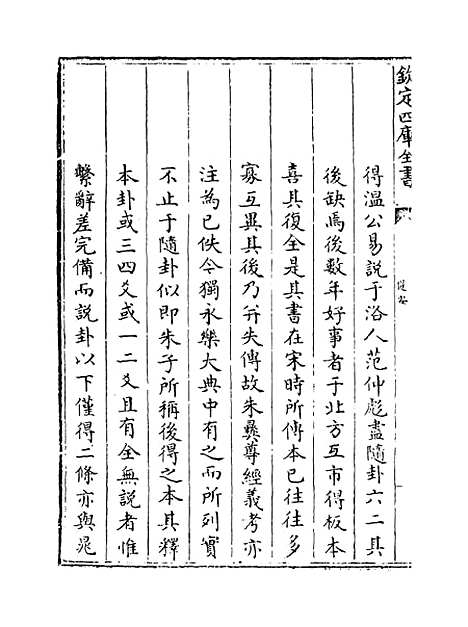 欽定四庫全書
提要
得溫公易説于洛人范仲彪盡隨卦六二其
後缺焉後數年好事者于北方互市得板本
喜其復全是其書在宋時所傳本已往往多
寡互異其後乃并失傳故朱彝尊經義考亦
注為已佚今獨永樂大典中有之而所列實
不止于隨卦似即朱子所稱後得之本其釋
本卦或三四爻或一二爻且有全無説者惟
繫辭差完備而説卦以下僅得二條亦與晁